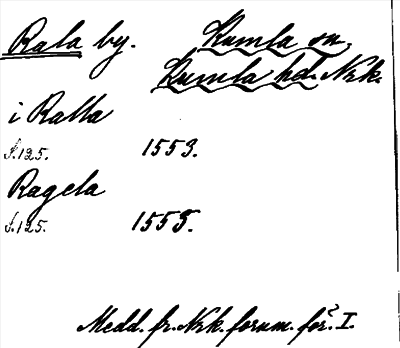 Rala by. Kumla sn.
Kumla hd. Nrk.
i Ralla
s. 125. 1553.
Ragela
s. 125. 1555.
Medd. fr. Nrk. fornm. för. I.